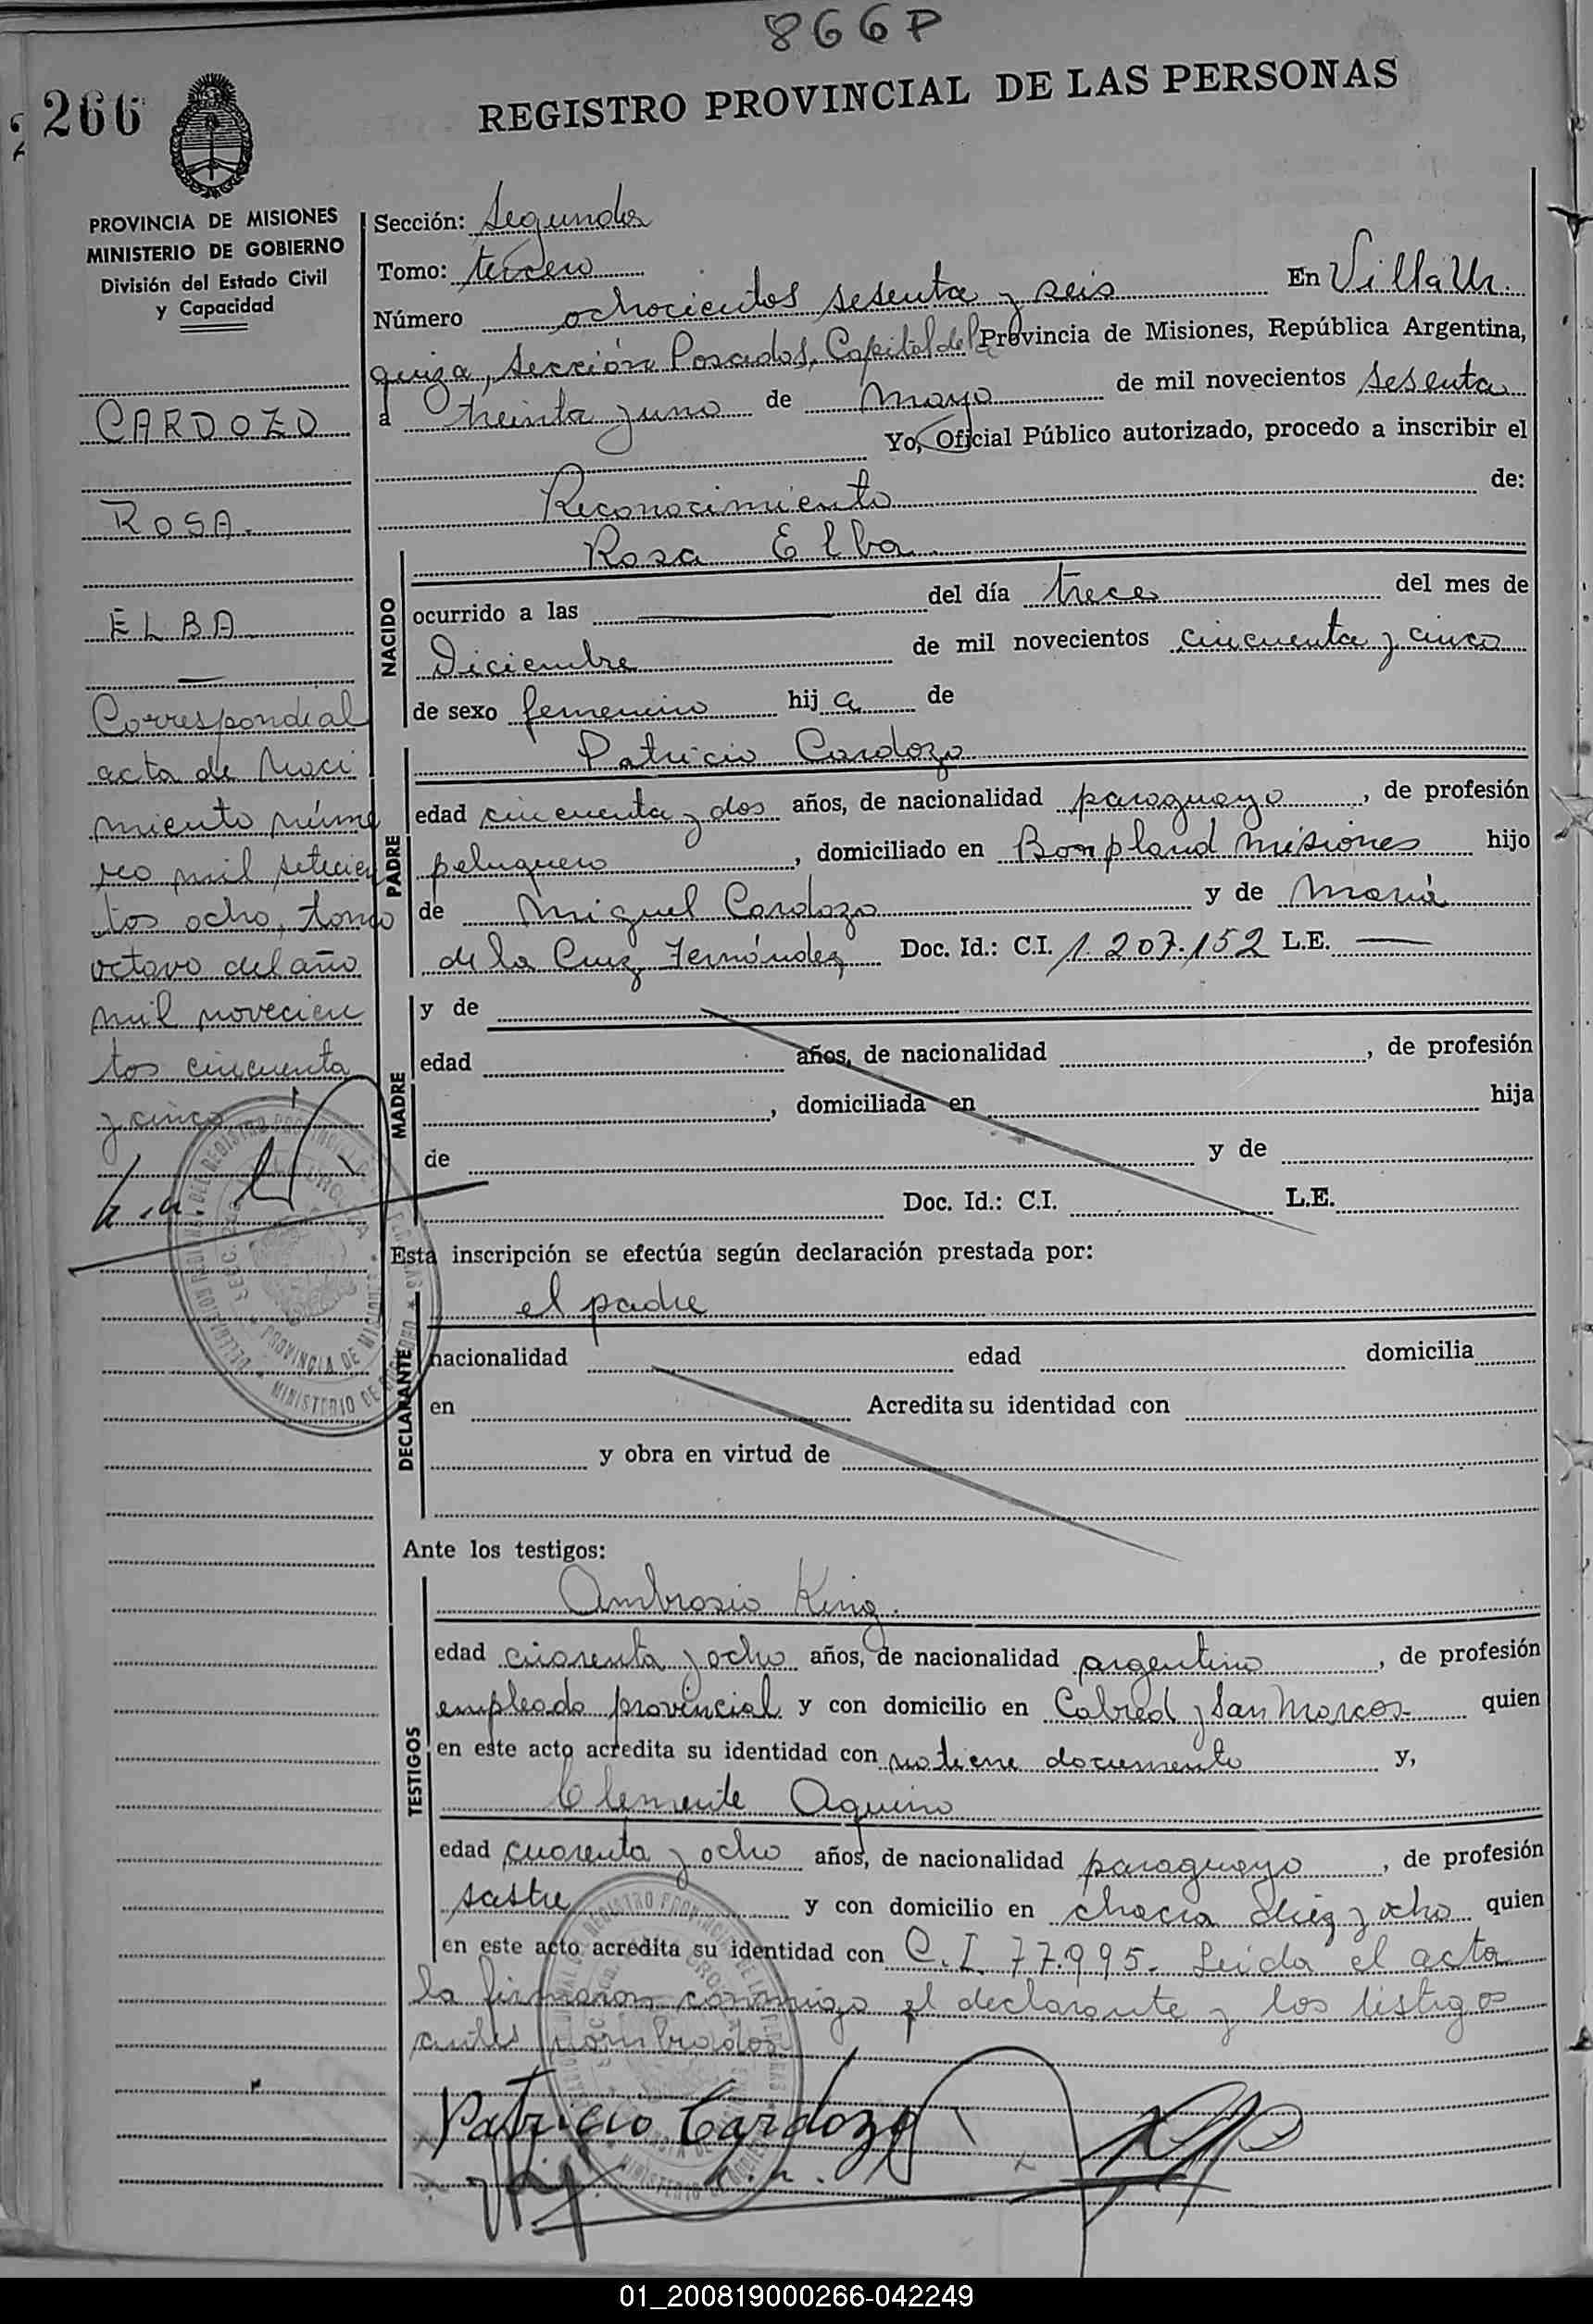 866P
266
REGISTRO PROVINCIAL DE LAS PERSONAS
PROVINCIA DE MISIONES
MINISTERIO DE GOBIERNO
División del Estado Civil
y Capacidad
CARDOZO
ROSA.
ELBA
Correspondeal
acta de Naci
miento núme
ro mil setecien
tos ocho, tomo
octavo del año
mil novecien
tos cincuenta
y cinco
Sección: Segunda
Tomo: tercero
Número ochocientos sesenta y seis En Villa Ur
quiza, Sección Posadas, Capital de la Provincia de Misiones, República Argentina,
a treinta y uno de mayo de mil novecientos sesenta
Yo, Oficial Público autorizado, procedo a inscribir el
Reconocimiento de:
NACIDO
Rosa Elba
ocurrido a las del día trece del mes de
Diciembre de mil novecientos cincuenta y cinco
de sexo femenino hija de
PADRE
Patricio Cardozo
edad cincuenta y dos años, de nacionalidad paraguayo, de profesión
peluquero, domiciliado en Bonpland Misiones hijo
de Miguel Cardozo y de María
de la Cruz Fernández Doc. Id.: C.I. 1.207.152 L.E.
MADRE
y de
edad años, de nacionalidad , de profesión
, domiciliada en hija
de y de
Doc. Id.: C.I. L.E.
Esta inscripción se efectúa según declaración prestada por:
DECLARANTE
el padre
nacionalidad edad domicilia
en Acredita su identidad con
y obra en virtud de
Ante los testigos:
TESTIGOS
Ambrosio King.
edad cuarenta y ocho años, de nacionalidad argentino, de profesión
empleado provincial y con domicilio en Cabred y San Marcos quien
en este acto acredita su identidad con no tiene documento y,
Clemente Aquino
edad cuarenta y ocho años, de nacionalidad paraguayo, de profesión
sastre y con domicilio en chacra diez y ocho quien
en este acto acredita su identidad con C.I. 77.995. Leida el acta
la firmaron conmigo el declarante y los testigos
antes nombrados
Patricio Cardozo
01_200819000266-042249